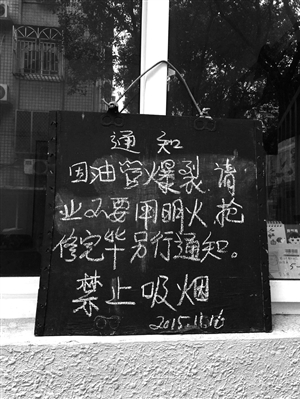 通知
因油管爆裂.请
业不要用明火,抢
修完毕另行通知。
禁止吸烟
2015.11.16